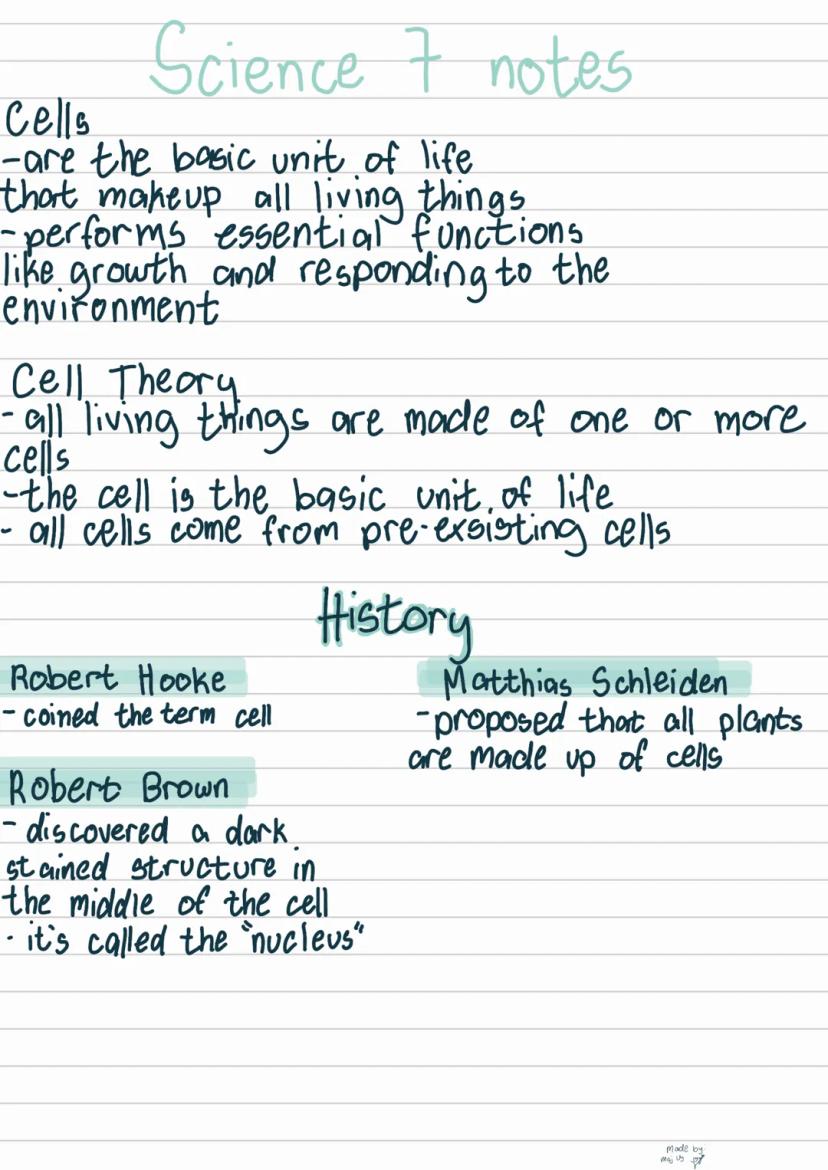 Science 7 notes
Cells
-are the basic unit of life
that makeup all living things
-performs essential functions
like growth and responding to the
environment
Cell Theory
- all living things are made of one or more
cells
-the cell is the basic unit of life
- all cells come from pre-exsisting cells
History
Robert Hooke
- coined the term cell
Robert Brown
- discovered a dark
stained structure in
the middle of the cell
· it's called the "nucleus"
Matthias Schleiden
-proposed that all plants
are made up of cells
made by: